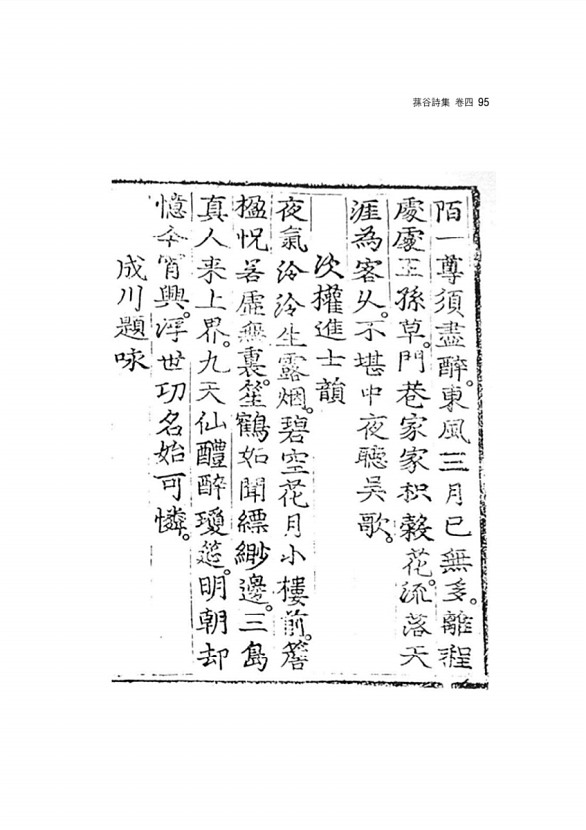 蓀谷詩集 卷四 95
陌一尊須盡醉。東風三月已無多。離程
處處王孫草。門巷家家枳殼花。流落天
涯為客久。不堪中夜聽吳歌。
次權進士韻
夜氣泠泠生露烟。碧空花月小樓前。簷
楹怳若虛無裏。笙鶴如聞縹緲邊。三島
真人来上界。九天仙醴醉瓊筵。明朝却
憶今宵興。浮世功名始可憐。
成川題咏